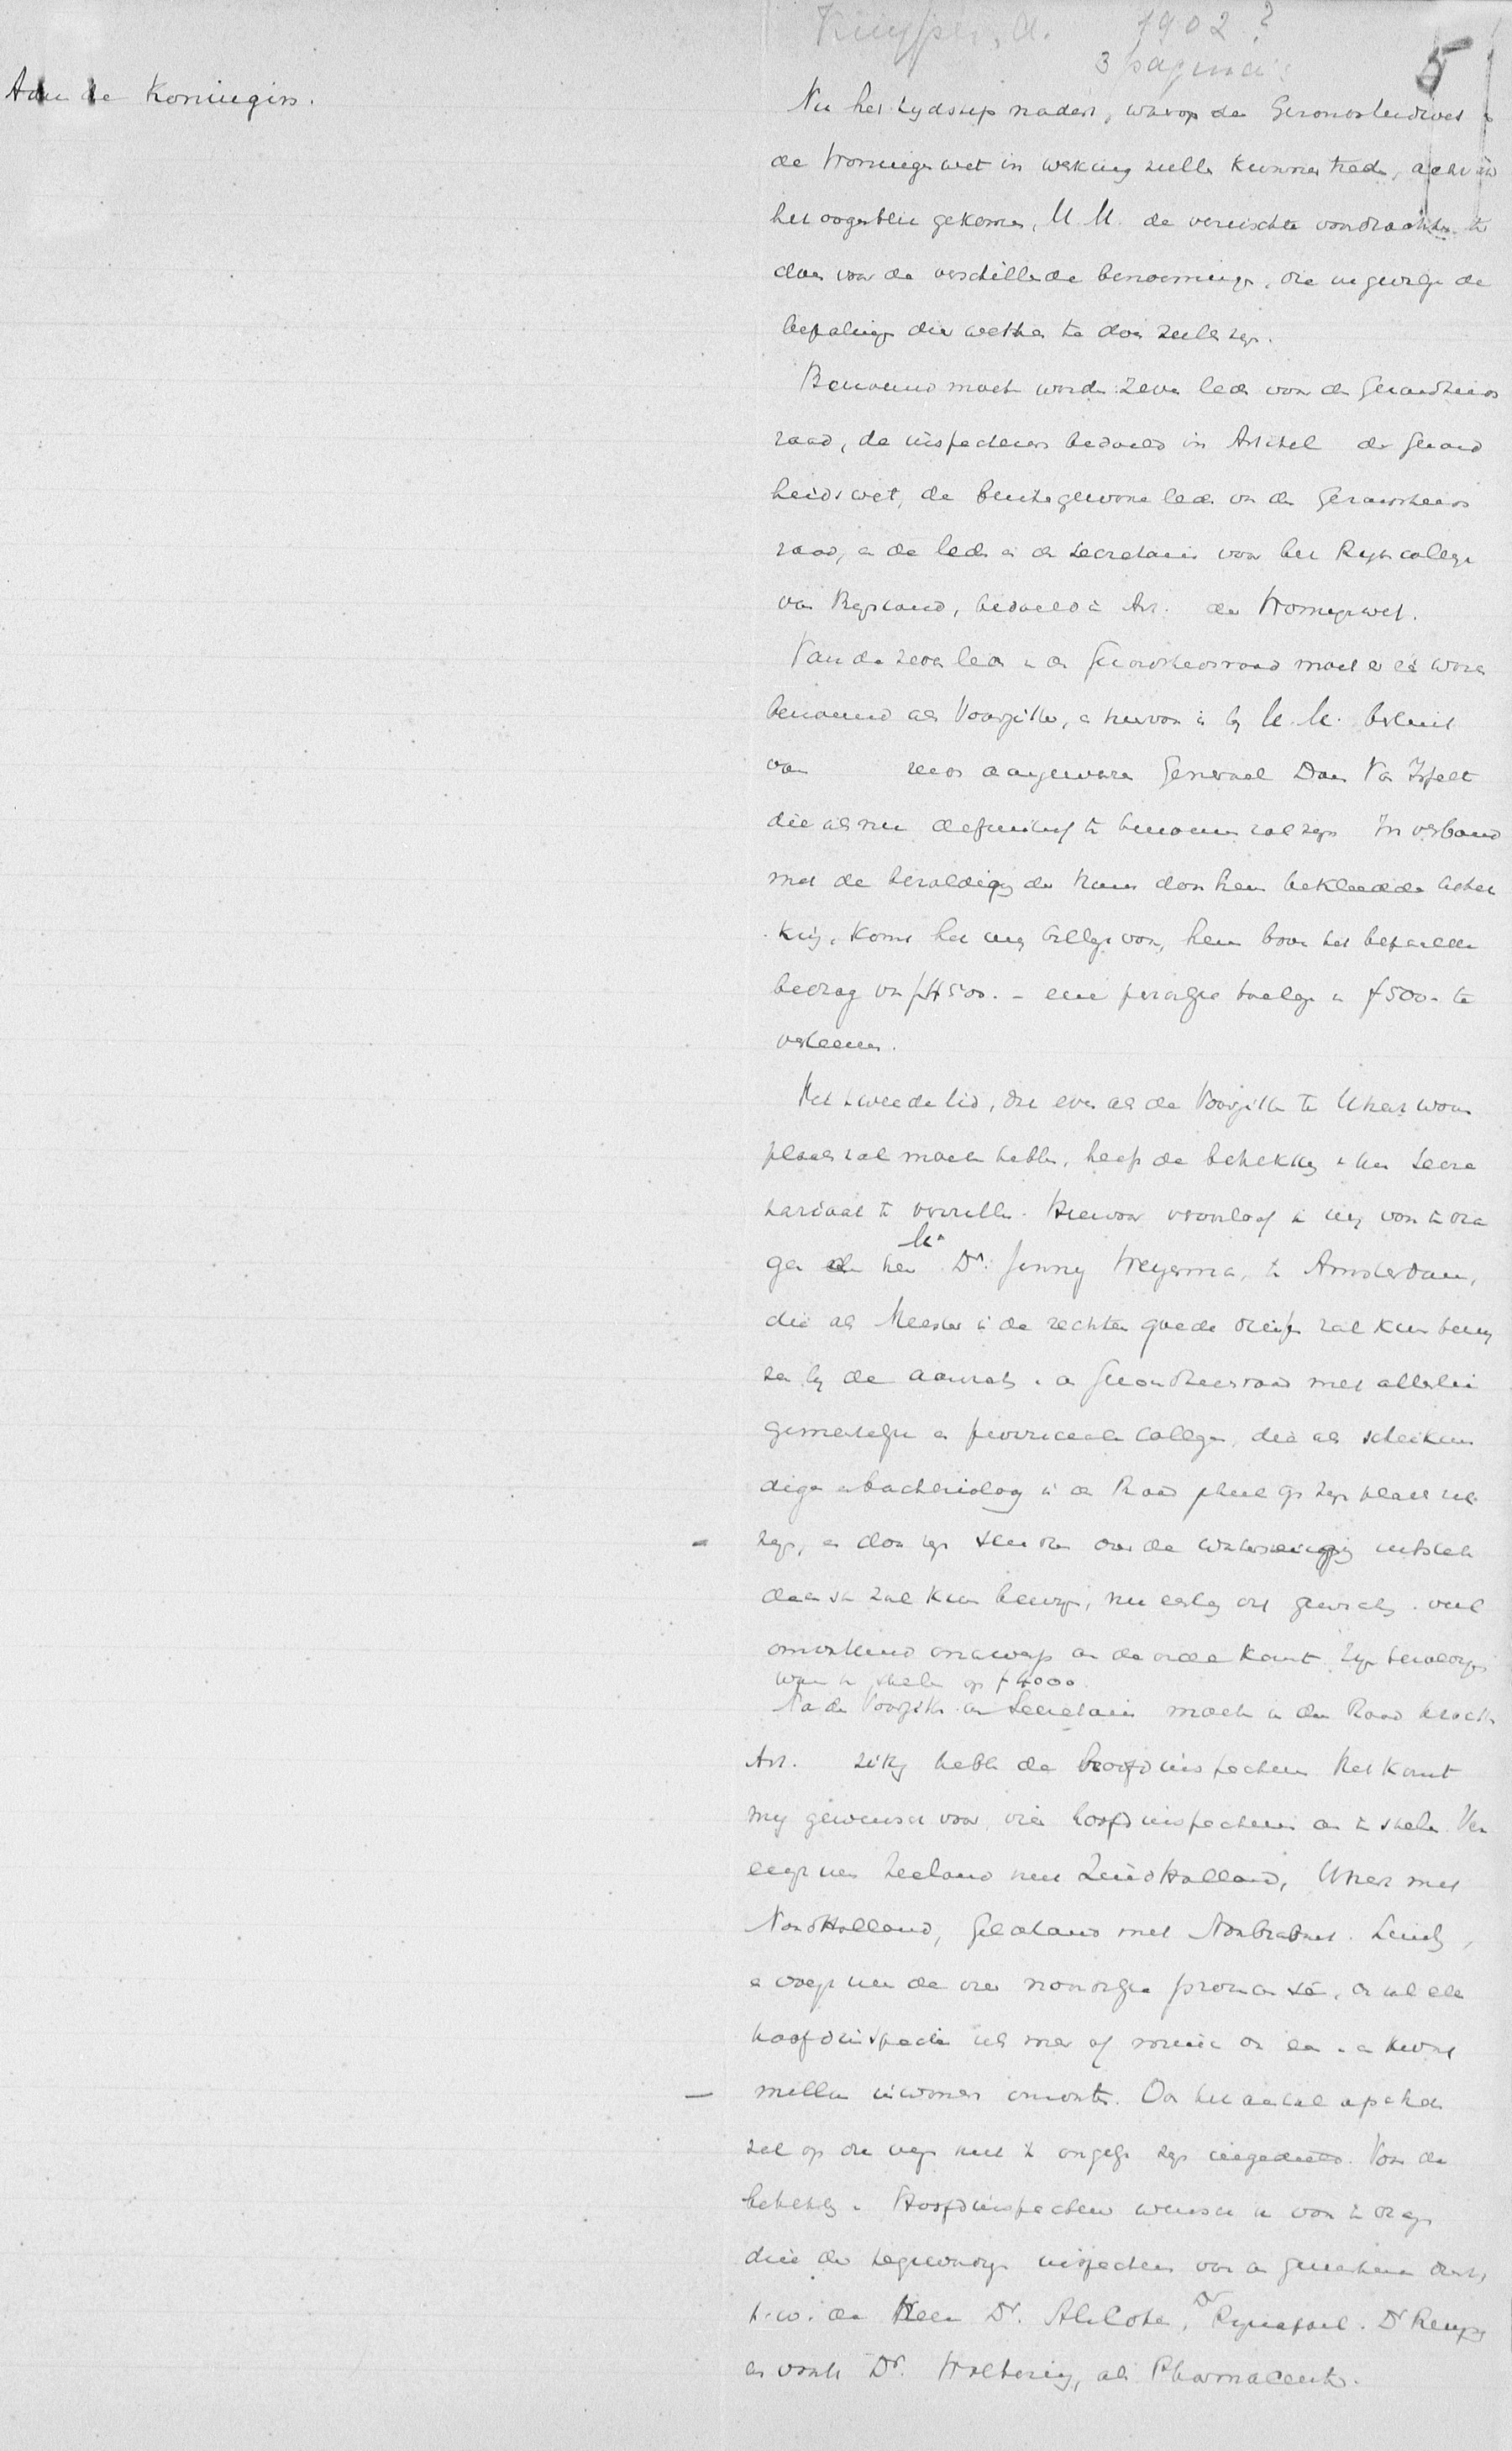 Kuyper, A. 1902?
3 pagina's
5
Aan de Koningin.
Nu het tydstip nadert, waarop de Gezondheidswet &
de Woningwet in werking zulle kunnen treden, acht ik
het oogenblik gekomen, U.M. de vereischte voordrachten te
doen voor de verschillende benoeminge, die ingevolge de
bepalinge dier wetten te doen zulle zyn.
Benoemd moeten worden zeven leden voor den Gezondheids
raad, de inspecteurs bedoeld in Artikel der Gezond
heidswet, de buitengewone leden van den Gezondheids
raad, en de leden en de secretaris voor het Ryks college
van Bystand, bedoeld in Art. der Woningwet.
Van de zeven leden van den Gezondheidsraad moet er één worden
benoemd als Voorzitter, en hiervoor is by U.M. besluit
van reeds aangewezen Generaal Dan Van IJsselt
die als nu definitief te benoemen zal zyn. In verband
met de bezoldiging der thans door hem bekleedde betrek
king, komt het my billyk voor, hem boven het bepaalde
bedrag van f 4500.- eene persoonlyke toelage van f 500.- te
verleenen.
Het tweede lid, die even als de Voorzitter te Utrecht woon
plaats zal moeten hebben, heeft de betrekking van het Secre
tariaat te vervullen. Hiervoor veroorloof ik my voor te dra
gen den heer Mr. Dr. Jenny Weyerman, te Amsterdam,
die als Meester in de rechten goede diensten zal kunnen bewy
zen by de aanraking van den Gezondheidsraad met allerlei
gemeentelyke en provinciale colleges, die als scheikun
dige en bacterioloog in den Raad geheel op zyn plaats zal
zyn, en door zyn studien over de waterreiniging uitstek
diensten zal kunnen bewyzen, nu eerlang dit gewichtig veel
omvattend onderwerp aan de orde komt. Zyn bezoldiging
ware te stellen op f 4000.
Na den Voorzitter en Secretaris moeten in den Raad krachtens
Art. zitting hebben de hoofdinspecteurs. Het komt
my gewenscht voor, vier hoofdinspecteurs aan te stellen. Ver
eenigt men Zeeland met Zuid Holland, Utrecht met
Noord Holland, Gelderland met Noordbrabant & Limburg,
en voegt men de vier noordelyke provincien saam, dan zal elke
hoofdinspectie iets meer of minder dan een en een kwart
millioen inwoners omvatten. Ook het aantal apotheken
zal op die wyze niet te ongelyk zyn ingedeeld. Voor de
betrekking van Hoofdinspecteur wensch ik voor te dragen
drie der tegenwoordige inspecteurs voor de geneeskundige dienst,
t.w. de Heeren Dr. Ali Cohen, Dr. Pynappel. Dr. Renssen
en voorts Dr. Woltering, als Pharmaceut.